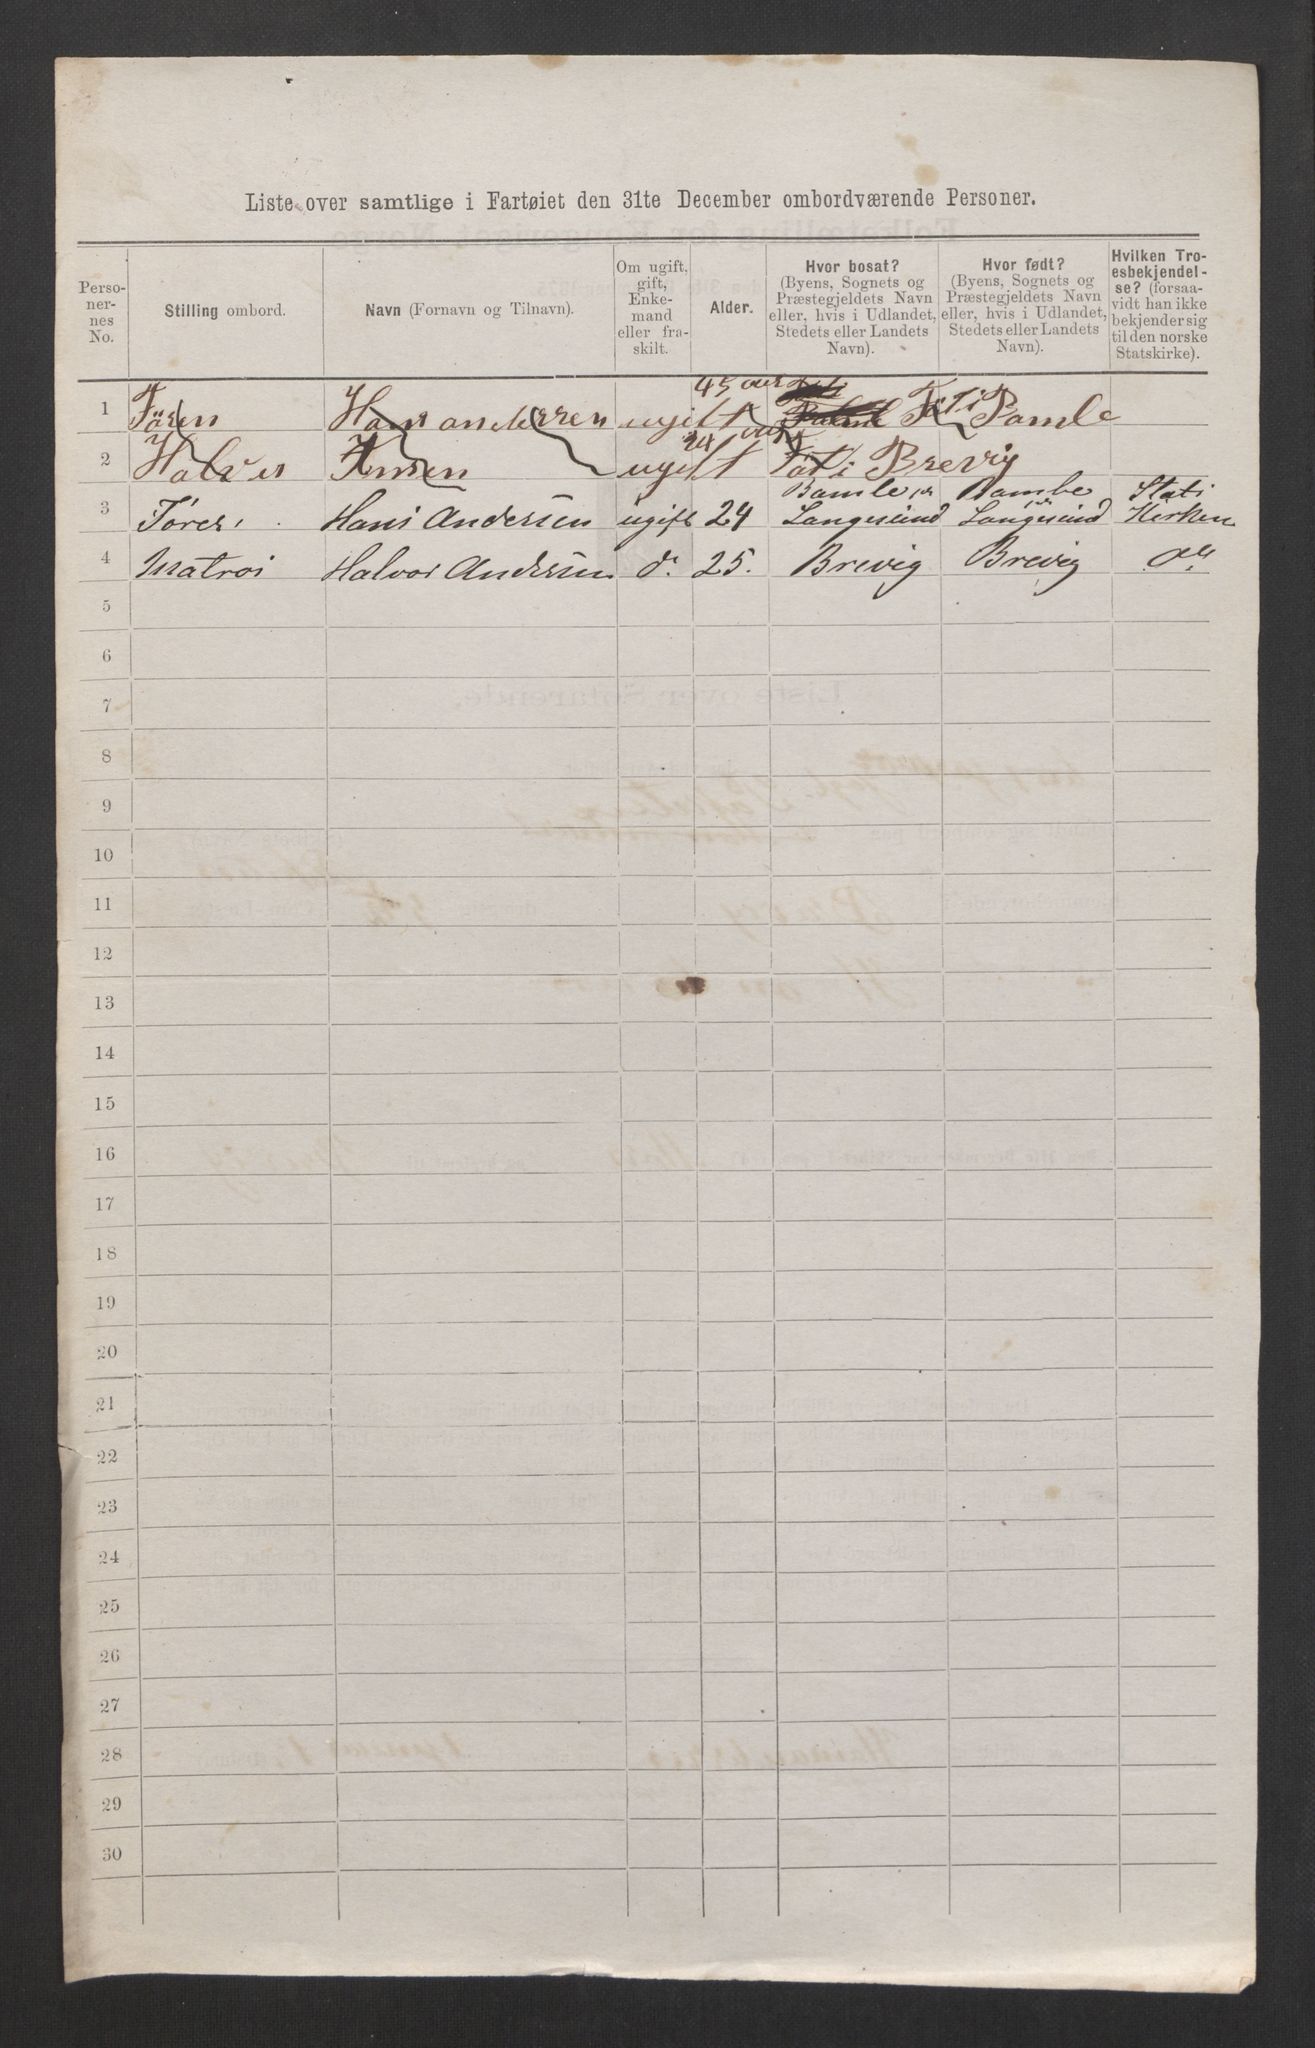 Liste over samtlige i Fartøiet den 31te December ombordværende Personer.
Personernes No.
Stilling ombord.
Navn (Fornavn og Tilnavn).
Om ugift, gift, Enkemand eller fraskilt.
Alder.
Hvor bosat? (Byens, Sognets og Præstegjeldets Navn eller, hvis i Udlandet, Stedets eller Landets Navn).
Hvor født? (Byens, Sognets og Præstegjeldets Navn eller, hvis i Udlandet, Stedets eller Landets Navn).
Hvilken Troesbekjendelse? (forsaavidt han ikke bekjender sig til den norske Statskirke).
45 aar
1 Hans andersen ugift Föt i Bamle
24 aar
2 Halver ugift Föt i Brevig
Bamle Bambe Stats
3 Fører Hans Andersen ugift 24 Langesund Langesund Kirken
4 Matros Halvor Andersen do 25. Brevig Brevig do
5
6
7
8
9
10
11
12
13
14
15
16
17
18
19
20
21
22
23
24
25
26
27
28
29
30